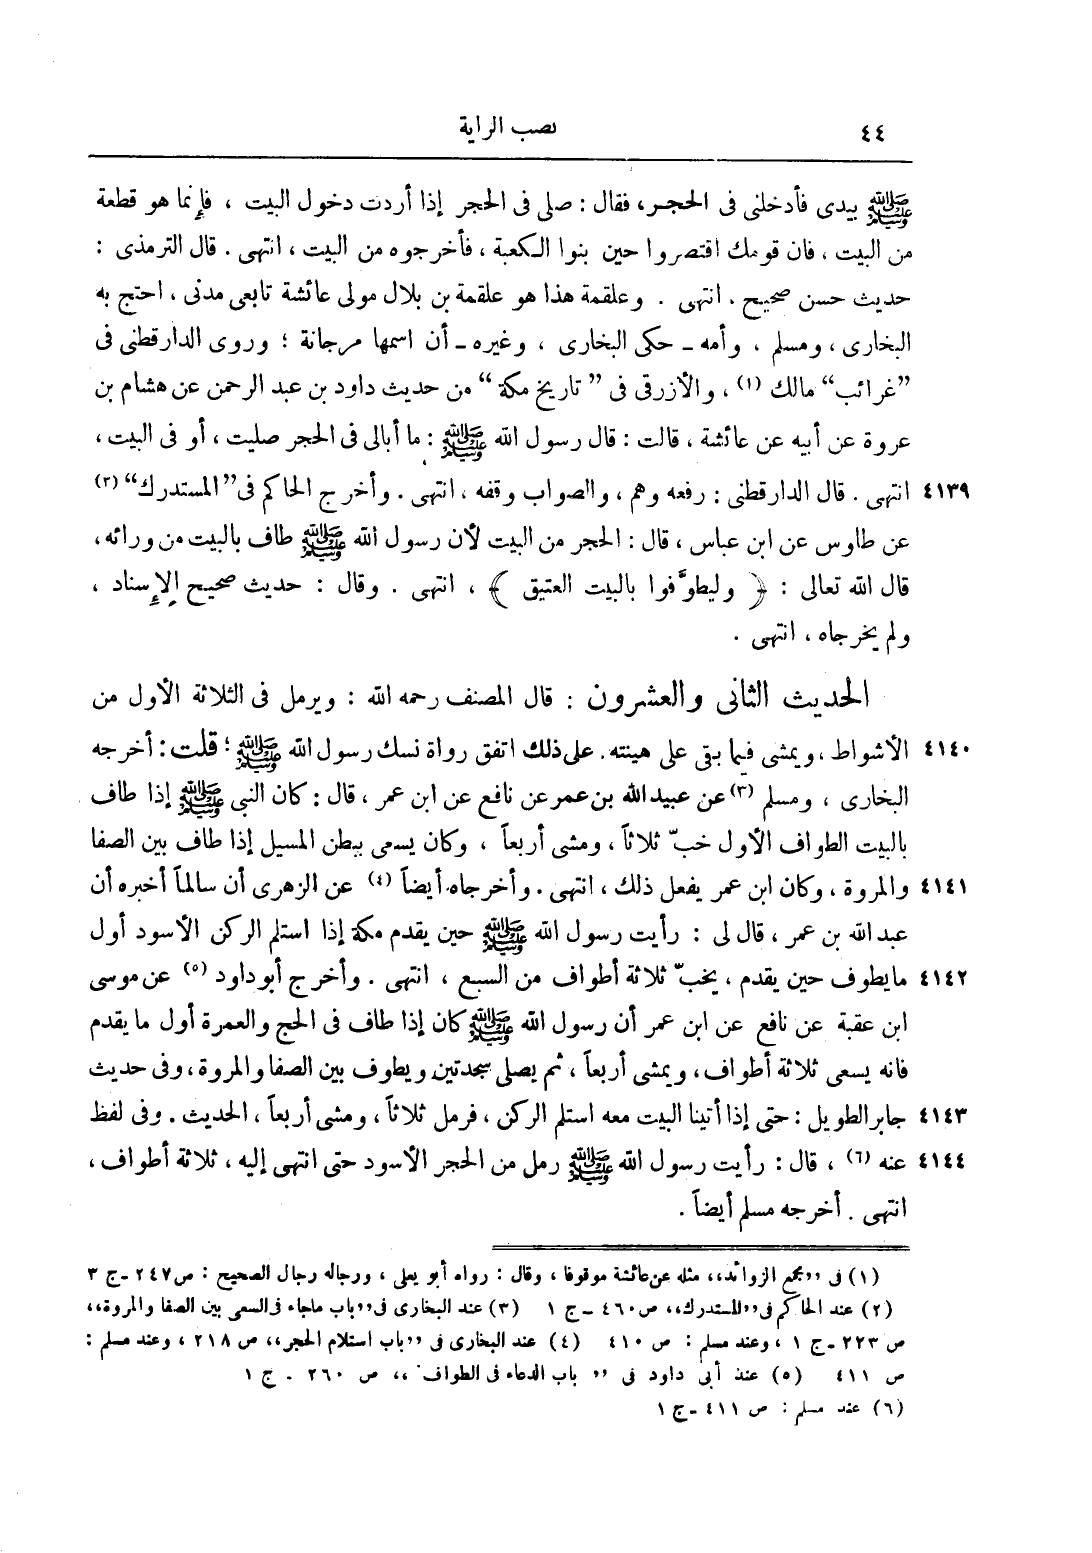 ٤٤ نصب الراية
ﷺ بيدى فأدخلنى فى الحجر، فقال : صلى فى الحجر إذا أردت دخول البيت ، فإنما هو قطعة
من البيت ، فان قومك اقتصروا حين بنوا الكعبة ، فأخرجوه من البيت ، انتهى . قال الترمذى :
حديث حسن صحيح ، انتهى . وعلقمة هذا هو علقمة بن بلال مولى عائشة تابعى مدنى ، احتج به
البخارى ، ومسلم ، وأمه ـ حكى البخارى ، وغيره ـ أن اسمها مرجانة ؛ وروى الدارقطنى فى
”غرائب“ مالك (١) ، والأزرقى فى ” تاريخ مكة “ من حديث داود بن عبد الرحمن عن هشام بن
عروة عن أبيه عن عائشة ، قالت : قال رسول الله ﷺ : ما أبالى فى الحجر صليت ، أو فى البيت ،
٤١٣٩ انتهى . قال الدارقطنى : رفعه وهم ، والصواب وقفه ، انتهى . وأخرج الحاكم فى ”المستدرك“ (٢)
عن طاوس عن ابن عباس ، قال : الحجر من البيت لأن رسول الله ﷺ طاف بالبيت من ورائه ،
قال الله تعالى : ﴿ وليطوَّفوا بالبيت العتيق ﴾ ، انتهى . وقال : حديث صحيح الإسناد ،
ولم يخرجاه ، انتهى .
الحديث الثانى والعشرون : قال المصنف رحمه الله : ويرمل فى الثلاثة الأول من
٤١٤٠ الأشواط ، ويمشى فيما بقى على هينته . على ذلك اتفق رواة نسك رسول الله ﷺ ؛ قلت : أخرجه
البخارى ، ومسلم (٣) عن عبيد الله بن عمر عن نافع عن ابن عمر ، قال : كان النبى ﷺ إذا طاف
بالبيت الطواف الأول خبّ ثلاثاً ، ومشى أربعاً ، وكان يسعى ببطن المسيل إذا طاف بين الصفا
٤١٤١ والمروة ، وكان ابن عمر يفعل ذلك ، انتهى . وأخرجاه أيضاً (٤) عن الزهرى أن سالماً أخبره أن
عبد الله بن عمر ، قال لى : رأيت رسول الله ﷺ حين يقدم مكة إذا استلم الركن الأسود أول
٤١٤٢ مايطوف حين يقدم ، يخبّ ثلاثة أطواف من السبع ، انتهى . وأخرج أبو داود (٥) عن موسى
ابن عقبة عن نافع عن ابن عمر أن رسول الله ﷺ كان إذا طاف فى الحج والعمرة أول ما يقدم
فانه يسعى ثلاثة أطواف ، ويمشى أربعاً ، ثم يصلى سجدتين ويطوف بين الصفا والمروة ، وفى حديث
٤١٤٣ جابر الطويل : حتى إذا أتينا البيت معه استلم الركن ، فرمل ثلاثاً ، ومشى أربعاً ، الحديث . وفى لفظ
٤١٤٤ عنه (٦) ، قال : رأيت رسول الله ﷺ رمل من الحجر الأسود حتى انتهى إليه ، ثلاثة أطواف ،
انتهى . أخرجه مسلم أيضاً .
(١) فى ,,مجمع الزوائد،، مثله عن عائشة موقوفا ، وقال : رواه أبو يعلى ، ورجاله رجال الصحيح : ص ٢٤٧ ـ ج ٣
(٢) عند الحاكم فى ,,المستدرك،، ص ٤٦٠ ـ ج ١ (٣) عند البخارى فى ,,باب ماجاء فى السعى بين الصفا والمروة،،
ص ٢٢٣ ـ ج ١ ، وعند مسلم : ص ٤١٠ (٤) عند البخارى فى ,,باب استلام الحجر،، ص ٢١٨ ، وعند مسلم :
ص ٤١١ (٥) عند أبى داود فى ,, باب الدعاء فى الطواف ،، ص ٢٦٠ ـ ج ١
(٦) عند مسلم : ص ٤١١ ـ ج ١